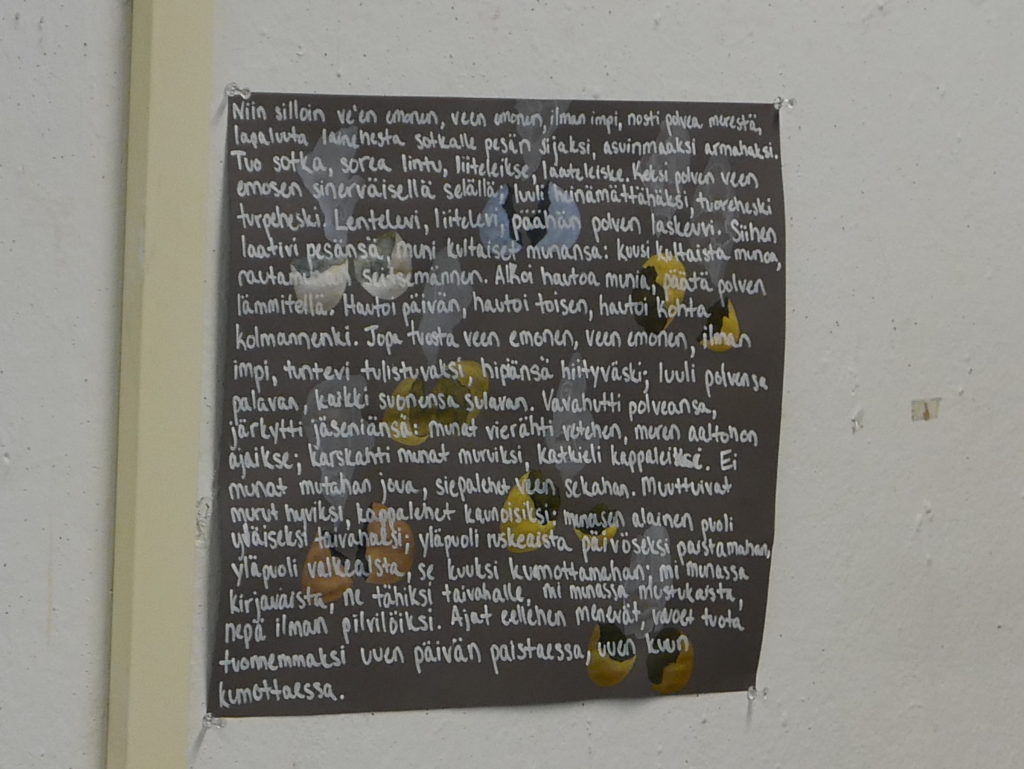 Niin silloin ve'en emonen, veen emonen, ilman impi, nosti polvea merestä,
lapaluuta lainehesta sotkalle pesän sijaksi, asuinmaaksi armahaksi.
Tuo sotka, sorea lintu, liiteleikse, laateleikse. Keksi polven veen
emosen sinerväisellä selällä, luuli heinämättähäksi, tuoreheski
turpeheski. Lentelevi, liitelevi, päähän polven laskeuvi. Siihen
laativi pesänsä, muni kultaiset munansa: kuusi kultaista munoa,
rautamunan seitsemännen. Alkoi hautoa munia, päätä polven
lämmitellä. Hautoi päivän, hautoi toisen, hautoi kohta
kolmannenki. Jopa tuosta veen emonen, veen emonen, ilman
impi, tuntevi tulistuvaksi, hipiänsä hiityväski; luuli polvensa
palavan, kaikki suonensa sulavan. Vavahutti polveansa,
järkytti jäseniänsä: munat vierähti vetehen, meren aaltohon
ajaikse; karskahti munat muruiksi, katkieli kappaleiksi. Ei
munat mutahan joua, siepalehet veen sekahan. Muuttuivat
murut hyviksi, kappalehet kaunoisiksi: munasen alainen puoli
yläiseksi taivahaksi; yläpuoli ruskeaista päivöseksi paistamahan,
yläpuoli valkeaista, se kuuksi kumottamahan; mi munassa
kirjavaista, ne tähiksi taivahalle, mi munassa mustukaista,
nepä ilman pilvilöiksi. Ajat eellehen menevät, vuoet tuota
tuonnemmaksi uuen päivän paistaessa, uuen kuun
kumottaessa.